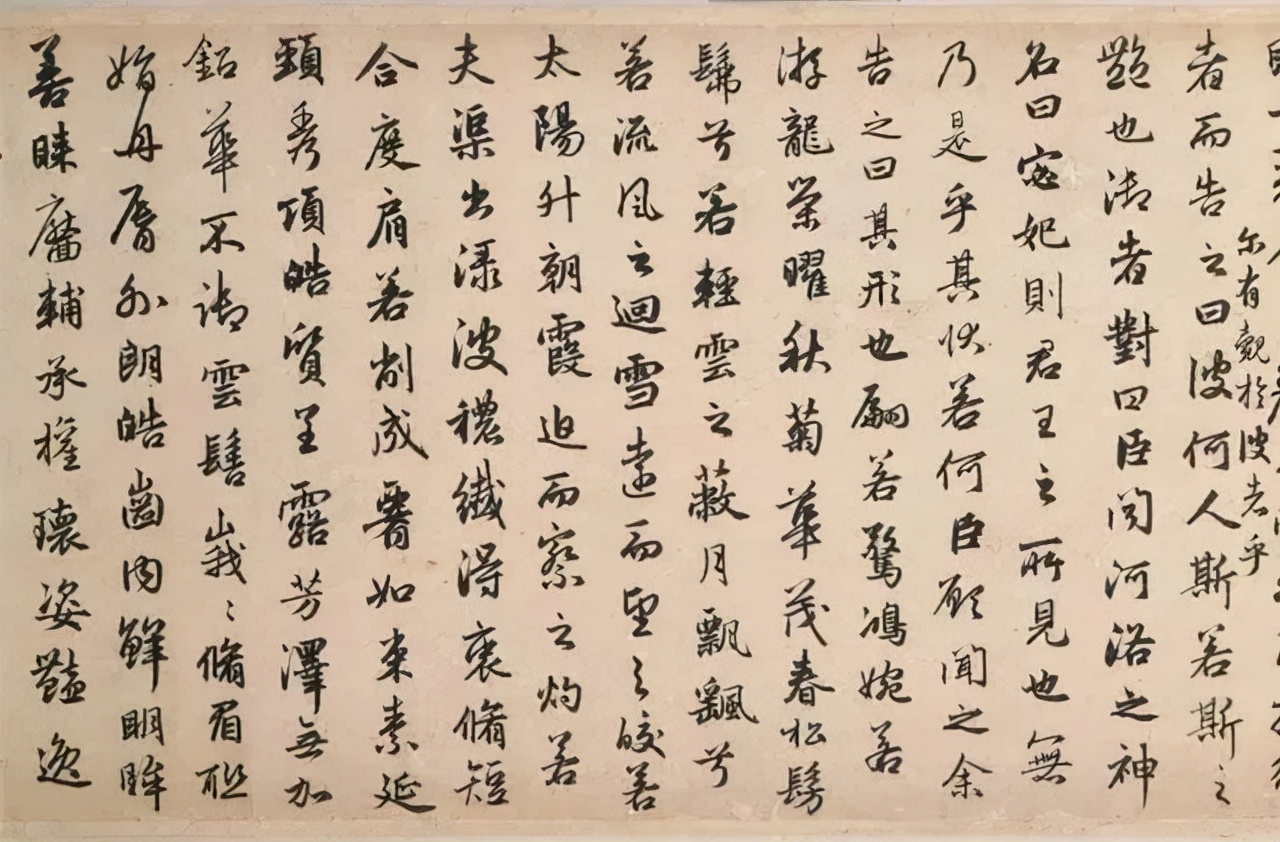 尔有覿於彼者乎
者而告之曰彼何人斯若斯之
艷也御者對曰臣聞河洛之神
名曰宓妃則君王之所見也無
乃是乎其狀若何臣願聞之余
告之曰其形也翩若驚鴻婉若
游龍榮曜秋菊華茂春松髣
髴兮若輕雲之蔽月飄颻兮
若流風之迴雪遠而望之皎若
太陽升朝霞迫而察之灼若
夫渠出淥波穠纖得衷脩短
合度肩若削成如束素延
頸秀項皓質呈露芳澤無加
鉛華不御雲髻峩〻脩眉聯
娟丹脣外朗皓齒內鮮明眸
善睞靨輔承權瓌姿豔逸